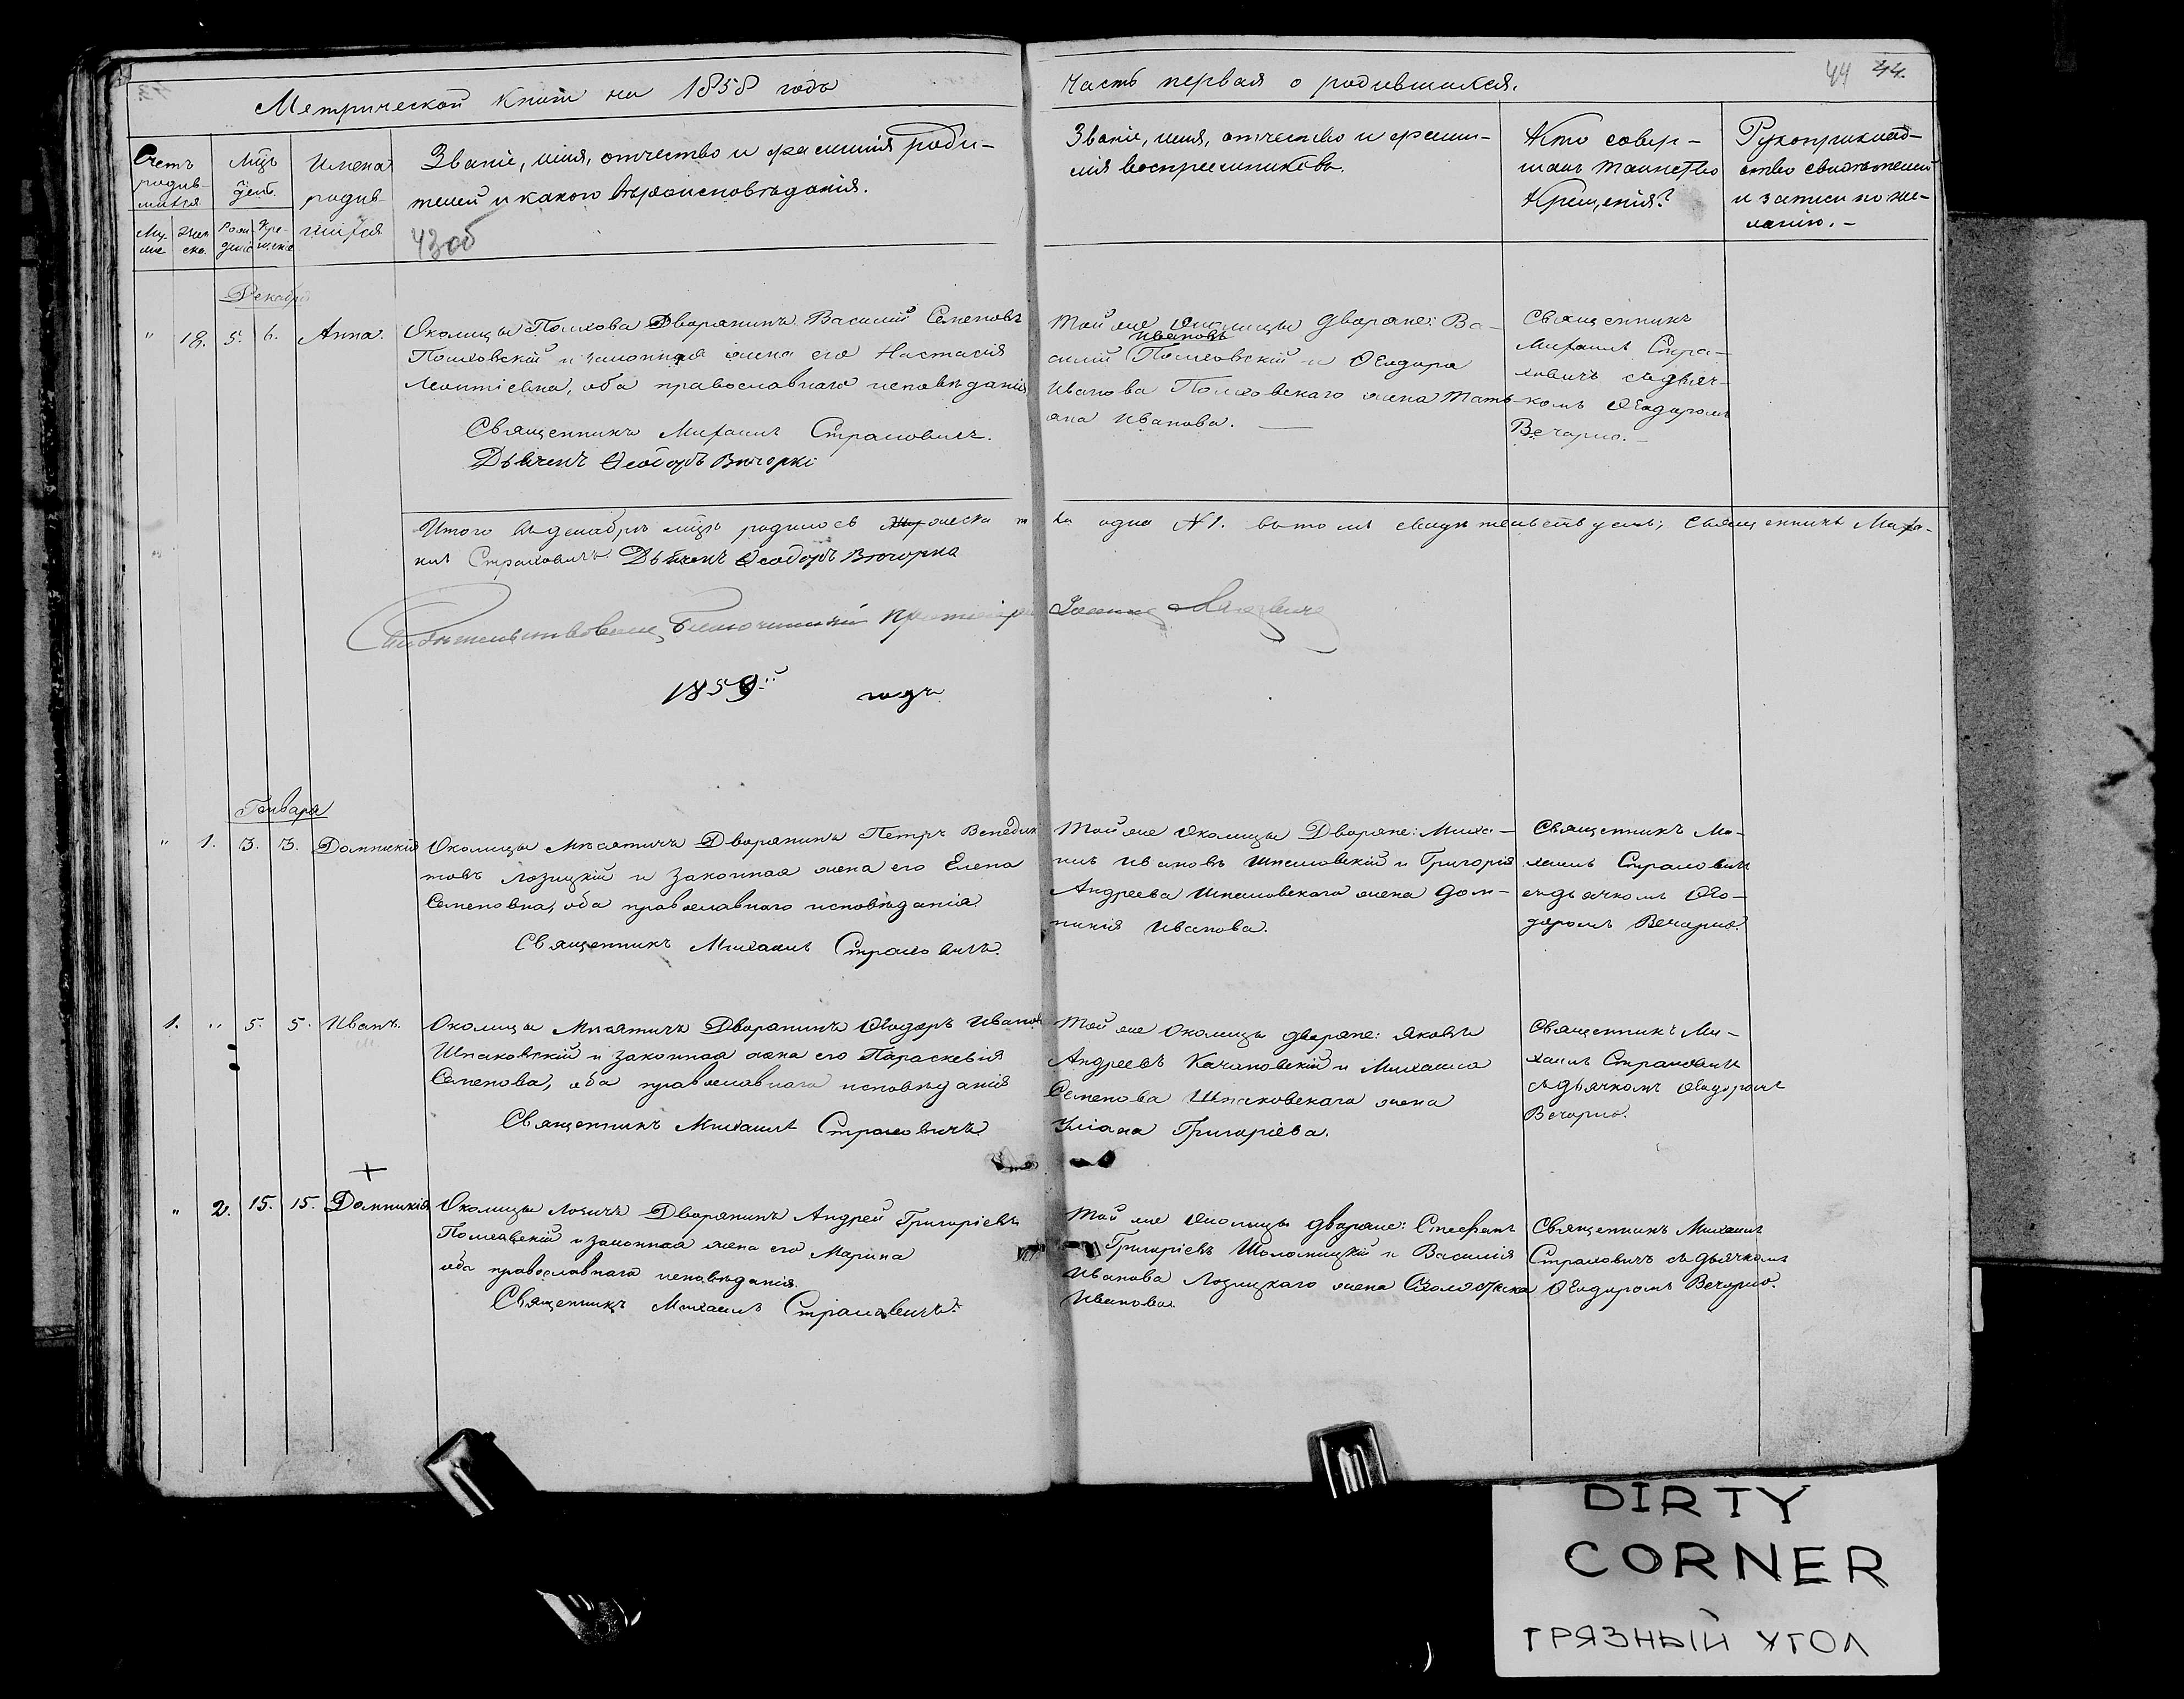 Метрической книги на 1858 годъ
Часть первая о родившихся.
44 44.
Счетъ родив-шихся
Мц̃ъ день.
Имена родив-шихся
Званіе, имя, отчество и фамилія роди-
телей и какого вѣроисповѣданія.
43об
Званіе, имя, отчество и фами-
лія воспреемниковъ.
Кто совер-
шалъ таинство
Крещенія?
Рукоприклад-
ство свидѣтелей
и записи по же-
ланію.-
Декабрь
" 18. 5. 6. Анна.
Околицы Полхова Дворянинъ Василій Семеновъ
Полховскій и законная жена его Настасія
Леонтіевна, оба православнаго исповѣданія
Священникъ Михаилъ Страховичъ.
Дьячекъ Ѳеодоръ Вечорко
Той же околицы дворяне: Ва-
Ивановъ
силій Полховскій и Ѳеодора
Иванова Полховскаго жена Тать-
яна Иванова.
Священникъ
Михаилъ Стра-
ховичъ съ дьяч-
комъ Ѳеодоромъ
Вечорко.-
Итого въ декабрѣ мц̃ѣ родилось женска
одна №1. въ томъ свидѣтельствуемъ; Священникъ Миха-
илъ Страховичъ Дьячекъ Ѳеодоръ Вечорка
Свидѣтельствовалъ Благочинный Протоіерей Іоаннъ
1859й годъ.
Генваря
" 1. 3. 3. Домникія
Околицы Мнсятичъ Дворянинъ Петръ Венедик
товъ Лозицкій и законная жена его Елена
Семеновна, оба православнаго исповѣданія
Священникъ Михаилъ Страховичъ.
Той же Околицы Дворяне: Миха-
илъ Ивановъ Шпаковскій и Григорія
Андреева Шпаковскаго жена Дом-
никія Иванова.
Священникъ Ми-
хаилъ Страховичъ
съ дьячкомъ Ѳео-
доромъ Вечорко.
1. " 5. 5. Иванъ.
Околицы Мнсятичъ Дворянинъ Ѳеодоръ Иванов
Шпаковскій и законная жена его Параскевія
Семенова, оба православнаго исповѣданія
Священникъ Михаилъ Страховичъ
Той же Околицы дворяне: Яковъ
Андреевъ Качановскій и Михаила
Семенова Шпаковскаго жена
Уліана Григоріева.
Священникъ Ми-
хаилъ Страховичъ
съ дьячкомъ Ѳеодоромъ
Вечорко.
+
" 2. 15. 15. Домникія
Околицы Дворянинъ Андрей Григоріевъ
Полховскій и законная жена его Марина
оба православнаго исповѣданія.
Священникъ Михаилъ Страховичъ.
Той же околицы дворяне: Стефанъ
Григоріевъ Шоломицкій и Василія
Иванова Лозицкаго жена
Иванова.
Священникъ Михаилъ
Страховичъ съ дьячкомъ
Ѳеодоромъ Вечорко.
DIRTY
CORNER
ГРЯЗНЫЙ УГОЛ